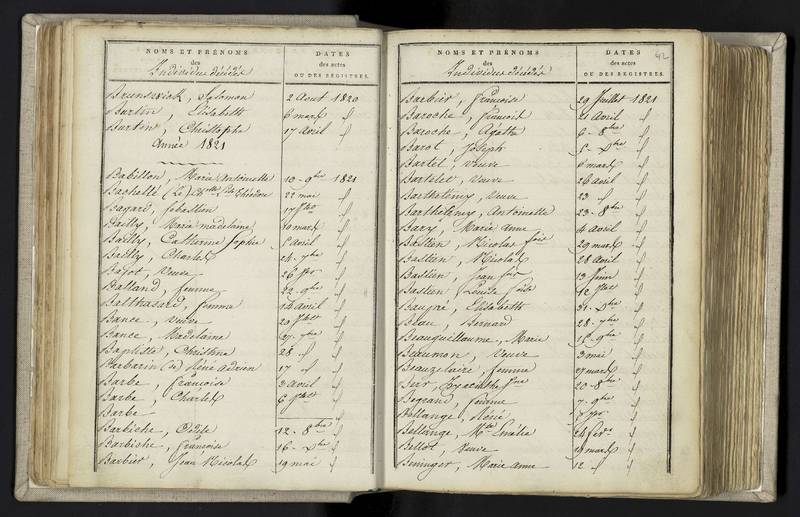 NOMS ET PRÉNOMS
des
Individus décédés
DATES
des actes
OU DES REGISTRES.
Brunswick, Salomon 2 Aout 1820
Burtin, Elisabeth 6 mars
Burton, Christophe 17 Avril
Année 1821
Babillon, Marie Antoinette 10 - 9bre 1821
Bachellé (Le) Théodore 22 mai
Bagard, Sébastien 17
Bailly, Marie madelaine mars
Bailly, Catherine Sophie Avril
Bailly, Charles 24 - 7bre
Bajot, Veuve 26
Balland, femme 22 - 9bre
Balthasard, femme 14 Avril
Bance, Veuve 20
Bance, Madelaine 7bre
Baptiste, Christine 28
Barbarin René Adrien 17
Barbe, françoise 3 Avril
Barbe, Charles 6
Barbe
Barbiche, 12 - 8bre
Barbiche, françoise 16 - Xbre
Barbier, Jean Nicolas 19 mai
NOMS ET PRÉNOMS
des
Individus décédés
DATES
des actes
OU DES REGISTRES.
42
Barbier, françoise 29 Juillet 1821
Baroche, françois 21 Avril
Baroche, Agathe 6 - 8bre
Barot, Joseph Xbre
Bartel, Veuve 6 mars
Bartelet, Veuve 26 Avril
Barthelemy, Veuve 23
Barthélemy, Antoinette 23 - 8bre
Bary, Marie Anne 4 Avril
Bastien, Nicolas 29 mars
Bastien, Nicolas 28 Avril
Bastien, Jean 13 Juin
Bastien, Louise 12
Baupré, Elisabeth 31 - Xbre
Beau, Bernard 28 - 7bre
Beauguillaume, Marie 9bre
Beaumon, Veuve 3 mai
Beauzelaire, femme 27 mars
Hyacinthe 20 - 8bre
Begrand, femme 7 - 9bre
Bellange, René
Bellange, Emélie 24
Bellot, Veuve 19 mars
Beninger, Marie Anne 12